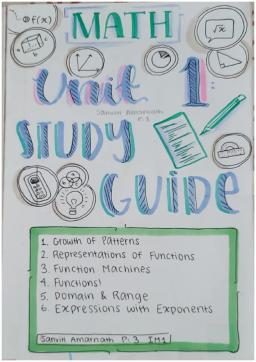 f(x)
MATH
√x
Unit 1:
Sanvih Amarnath
P.3
STUDY
GUIDE
1. Growth of Patterns
2. Representations of Functions
3. Function Machines
4. Functions!
5. Domain & Range
6. Expressions with Exponents
Sanvih Amarnath P.3 IM1